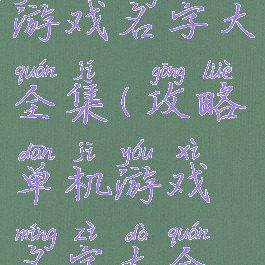 游戏名字大
quán jí gōng lüè
全集(攻略
dān jī yóu xì
单机游戏
míng zì dà quán
名字大全